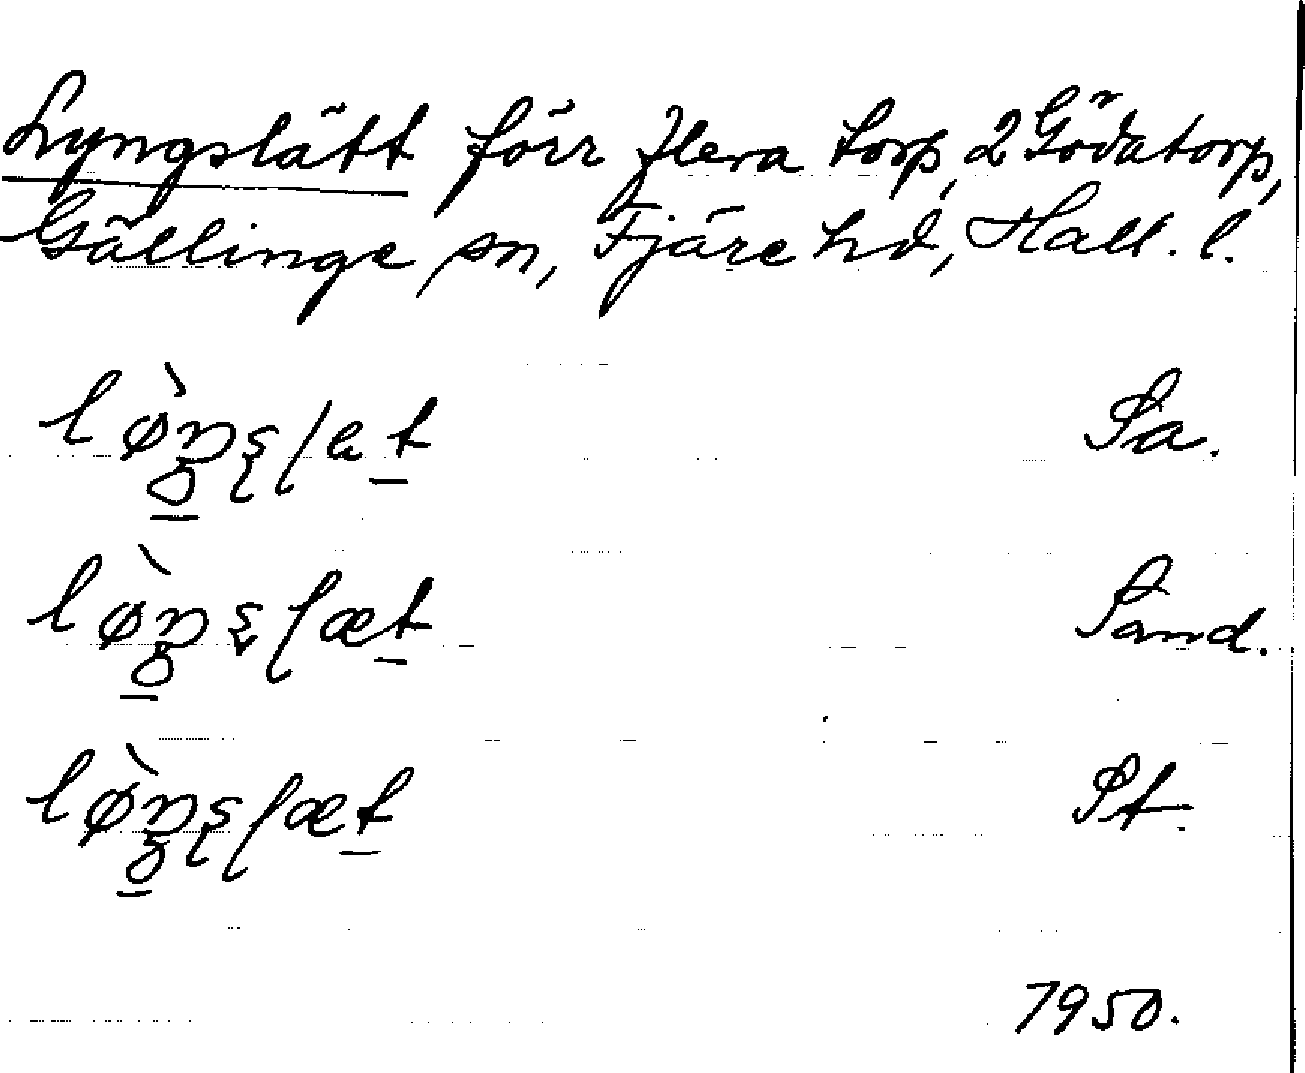 Lyngslätt förr flera torp, 2 Gödatorp,
Gällinge sn, Fjäre hd, Hall. l.
lø̀ŋslat Pa.
lø̀ŋslæt Sand.
lø̀ŋslæt Pt.
7950.